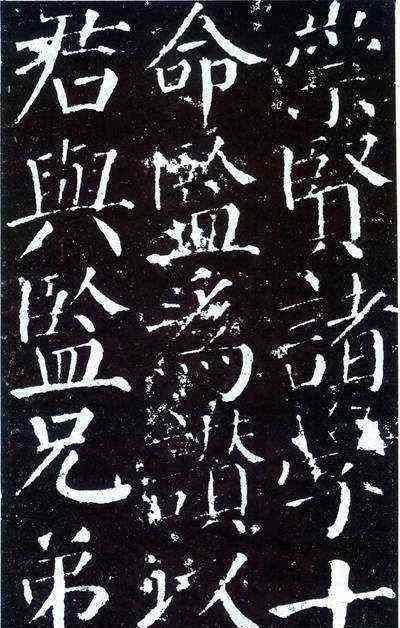 崇賢諸學士
命監為讚以
君與監兄弟